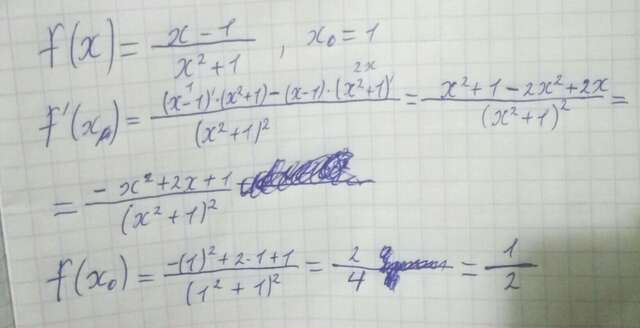 f(x) = (x - 1)/(x² + 1), x₀ = 1
f'(x) = ((x-1)'·(x²+1) - (x-1)·(x²+1)')/(x²+1)² = (x²+1-2x²+2x)/(x²+1)² =
= (-x²+2x+1)/(x²+1)²
f(x₀) = (-(1)²+2·1+1)/(1²+1)² = 2/4 = 1/2